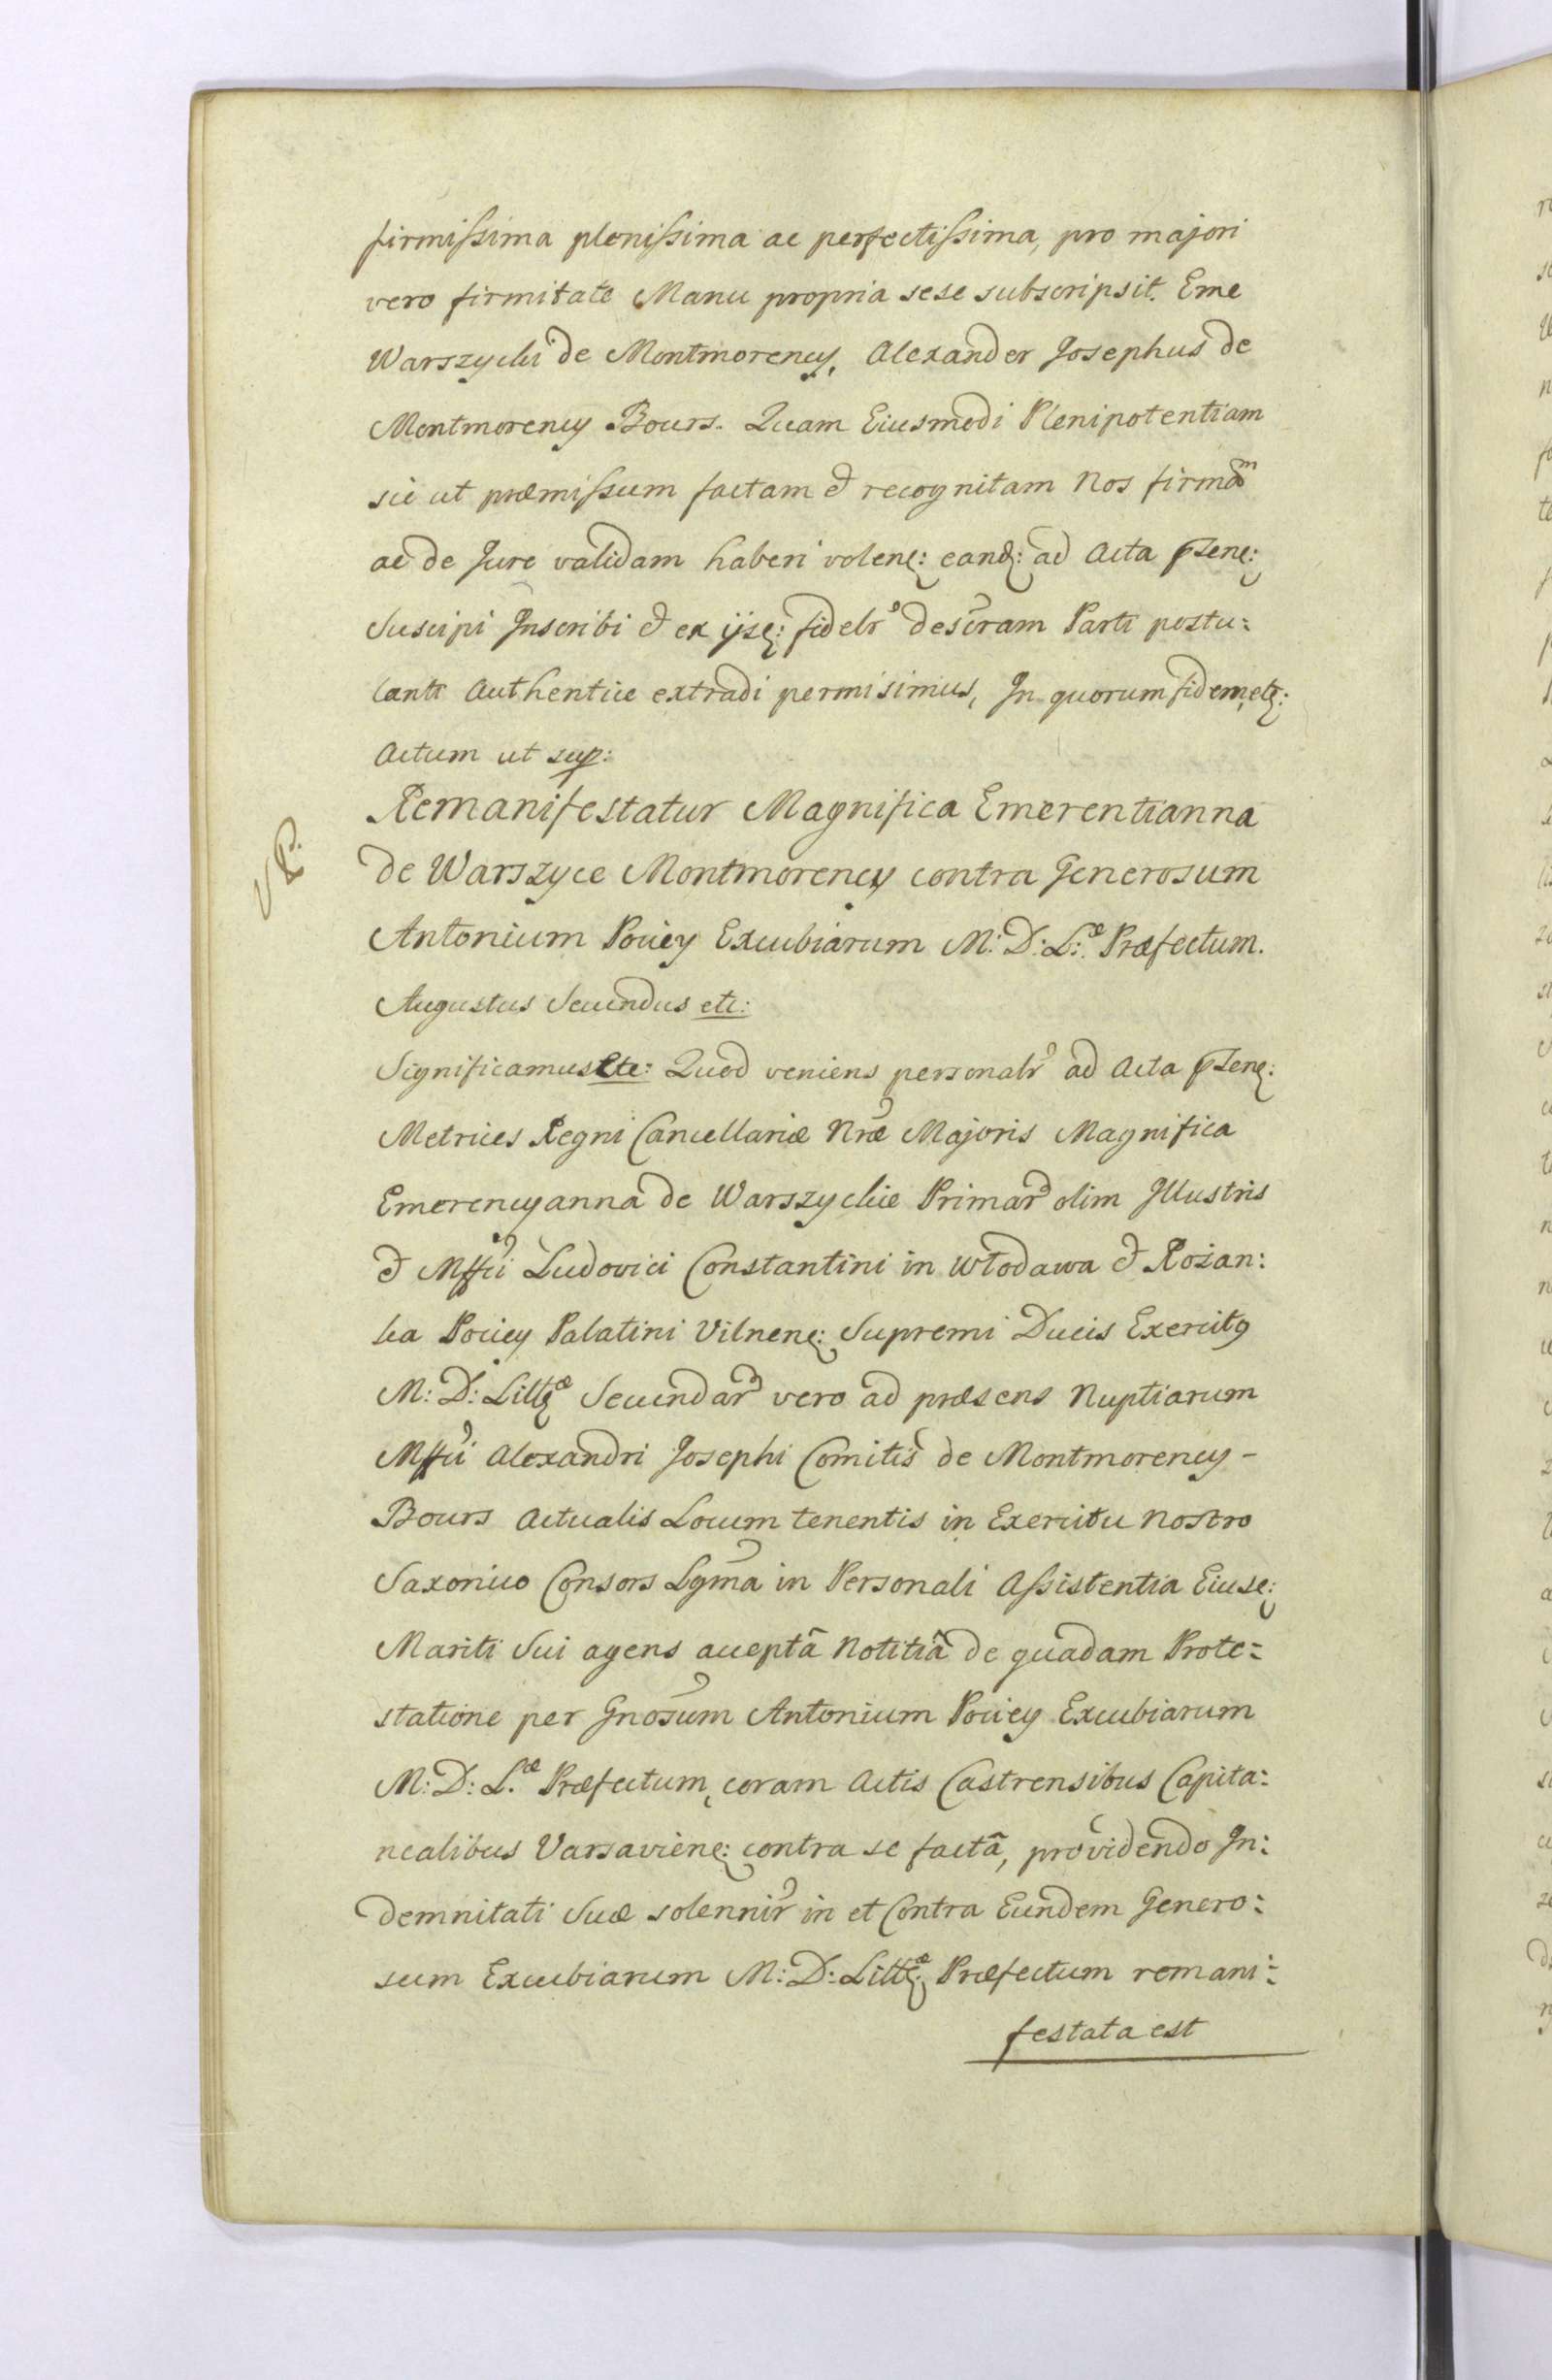 firmissima plenissima ac perfectissima, pro majori
vero firmitate Manu propria sese subscripsit. Eme
Warszycki de Montmorency, Alexander Josephus de
Montmorency Bours. Quam Eiusmodi Plenipotentiam
sic ut præmissum factam & recognitam Nos firmam
ac de Jure validam haberi volen: eand: ad Acta pñen:
Suscipi Inscribi & ex ijs: fidelr descram Parti postu:
lanti Authentice extradi permisimus, In quorum fidem, et:
Actum ut sup:
Remanifestatur Magnifica Emerentianna
de Warszyce Montmorency contra Generosum
VP.
Antonium Pociey Excubiarum M: D: L:æ Præfectum.
Augustus Secundus etc:
Significamus Etc: Quod veniens personalr ad Acta pñen:
Metrices Regni Cancellariæ Nræ Majoris Magnifica
Emerencyanna de Warszyckie Primar olim Illustris
& Mffci Ludovici Constantini in Włodawa & Rożan:
ka Pociey Palatini Vilnen: Supremi Ducis Exercitg
M: D: Littæ Secundar vero ad præsens Nuptiarum
Mffci Alexandri Josephi Comitis de Montmorency -
Bours Actualis Locum tenentis in Exercitu Nostro
Saxonico Consors Lgma in Personali Assistentia Eius:
Mariti Sui agens acceptâ Notitiâ de quadam Prote:
statione per Gnosum Antonium Pociey Excubiarum
M: D: L.æ Præfectum, coram Actis Castrensibus Capita:
nealibus Varsavien: contra se factâ, providendo In:
demnitati Suæ solennir in et Contra Eundem Genero:
sum Excubiarum M: D: Littæ Præfectum remani:
festata est